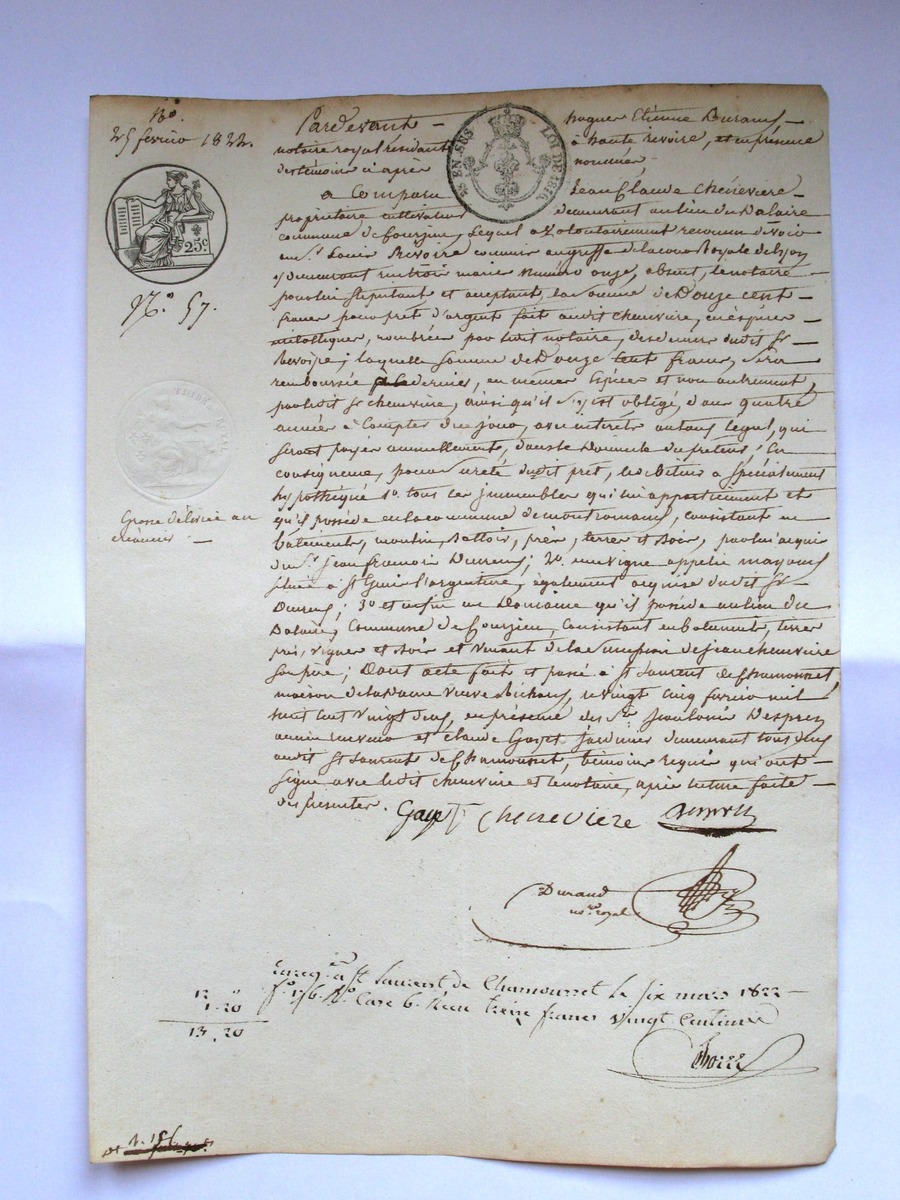 25 fevrier 1822.
25c
N.° 57.
Grosse délivrée au
créancier. —
EN SUS
LOI DE 1816
Pardevant — hugues Etienne Durand —
notaire royal résidant à haute rivoire, et en présence
des témoins ci après nommés
a Comparu Jean Claude Cheneviere —
propriétaire cultivateur demeurant au lieu du Dalaire
commune de Courzieu, Lequel a Volontairement reconnu devoir
au Sr. Louis Rivoire commis au greffe de la cour Royale de Lyon
y demeurant rue trois maries Numéro onze, absent, le notaire —
pour lui stipulant et acceptant, la Somme de Douze cent —
francs pour prêt d'argent fait audit cheneviere, en espèces —
métalliques, nombrées par ledit notaire, des deniers dudit Sr —
Rivoire; laquelle somme de Douze Cent francs, sera
remboursée à ce dernier, en mêmes Espèces et non autrement,
par ledit Sr cheneviere, ainsi qu'il s'y est obligé, dans quatre
années à Compter de ce jour, avec intérêts au taux légal, qui
seront payés annuellement, dans le Domicile du prêteur; En
conséquence, pour sureté dudit prêt, le débiteur a Spécialement
hypothéqué 1o. tous les immeubles qui lui appartiennent et
qu'il possède en la commune de montromand, consistant en
bâtiments, moulin, Battoir, près, terres et Bois, par lui acquis
du Sr. Jean francois Durand; 2o. une vigne appelée
située à St Genis l'argentiere, également acquise dudit Sr —
Durand; 3o et enfin un Domaine qu'il possède au lieu du
Dalaire, Commune de Courzieu, Consistant en Batiments, terres
près, vignes et Bois et venant de la succession de Jean cheneviere
son père; Dont acte fait et passé à St Laurent de Chamousset
maison de la dame veuve, le vingt Cinq fevrier mil
huit cent vingt deux, en présence des Srs. Jean Louis Desprez
ancien et Claude Gayet Jardinier demeurant tous deux
audit St Laurent de Chamousset, témoins requis qui ont —
signé avec ledit cheneviere et le notaire, après lecture faite —
des présentes.
Gayet cheneviere
Durand
nre royal
Enregé à St Laurent de Chamousset le six mars 1822 —
fo 156 Vo. Case 6. Reçu treize francs vingt Centimes
12 "
1.20
13,20